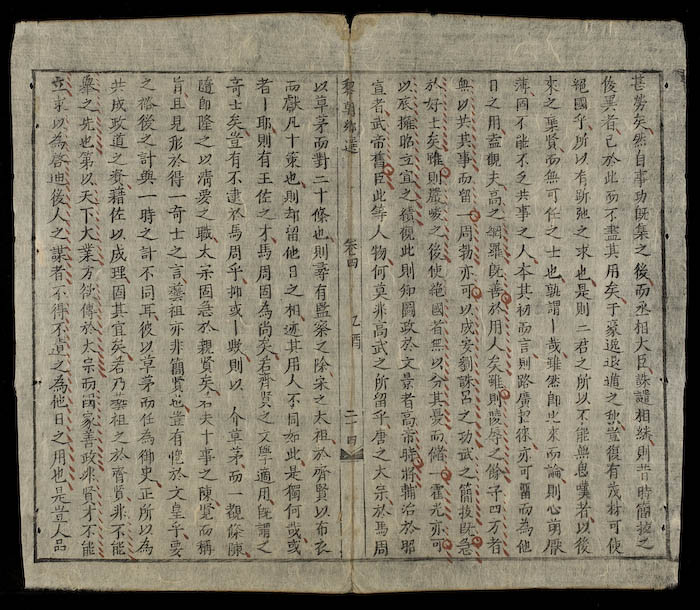 甚勞矣然自事功既集之後而丞相大臣誅譴相継則昔時簡拔之
俊異者已於此而不盡其用矣遐遁之豈復有茂材可使
絕國乎所以有弛之求也是則二君之所以不能無者以後
來之棄賢而無可任之士也孰謂丨哉雖然即此來而論則心厭
薄固不能不乏共事之人本其初而言則路廣招徠亦可畱而為他
日之用盍觀夫高之網羅既善於用人矣雖則陵辱之餘守四方者
無以共其事而留一周勃亦可以成安劉誅呂之功武之簡技既急
於好士矣雖則嚴峻之後使絕國者無以分其憂而備一霍光亦可
以成擁昭立宣之績觀此則知圖政於文景者高帝時將輔治於昭
宣者武帝舊臣此等人物何莫非高武之所留乎唐之太宗於馬周
黎朝鄉選 卷四 乙酉 二十四
以草茅而對二十條也則尋有監察之除宋之太祖於齊賢以布衣
而獻凡十策也則却留他日之相迹其用人不同如此是獨何哉或
者丨耶則有王佐之才馬周固為尚矣若齊賢之文學適用既謂之
奇士矣豈有不逮於馬周乎抑或丨歟則以一介草茅而一觀條陳
隨即隆之以清要之職太宗固急於親賢矣夫十事之陳覽而稱
旨且見形於得一奇士之言藝祖亦非簡賢也豈有愧於文皇乎要
之儲後之計與一時之計不同耳彼以草茅而任為御史正所以為
共成政道之資藉佐以成理固其宜矣若乃藝祖之於齊賢非不能
舉之先也第以天下大業方欲傳於太宗而國家善政非賢才不能
立求以為啓迪後人之謀者不得不遺之為他日之用也是豈人品